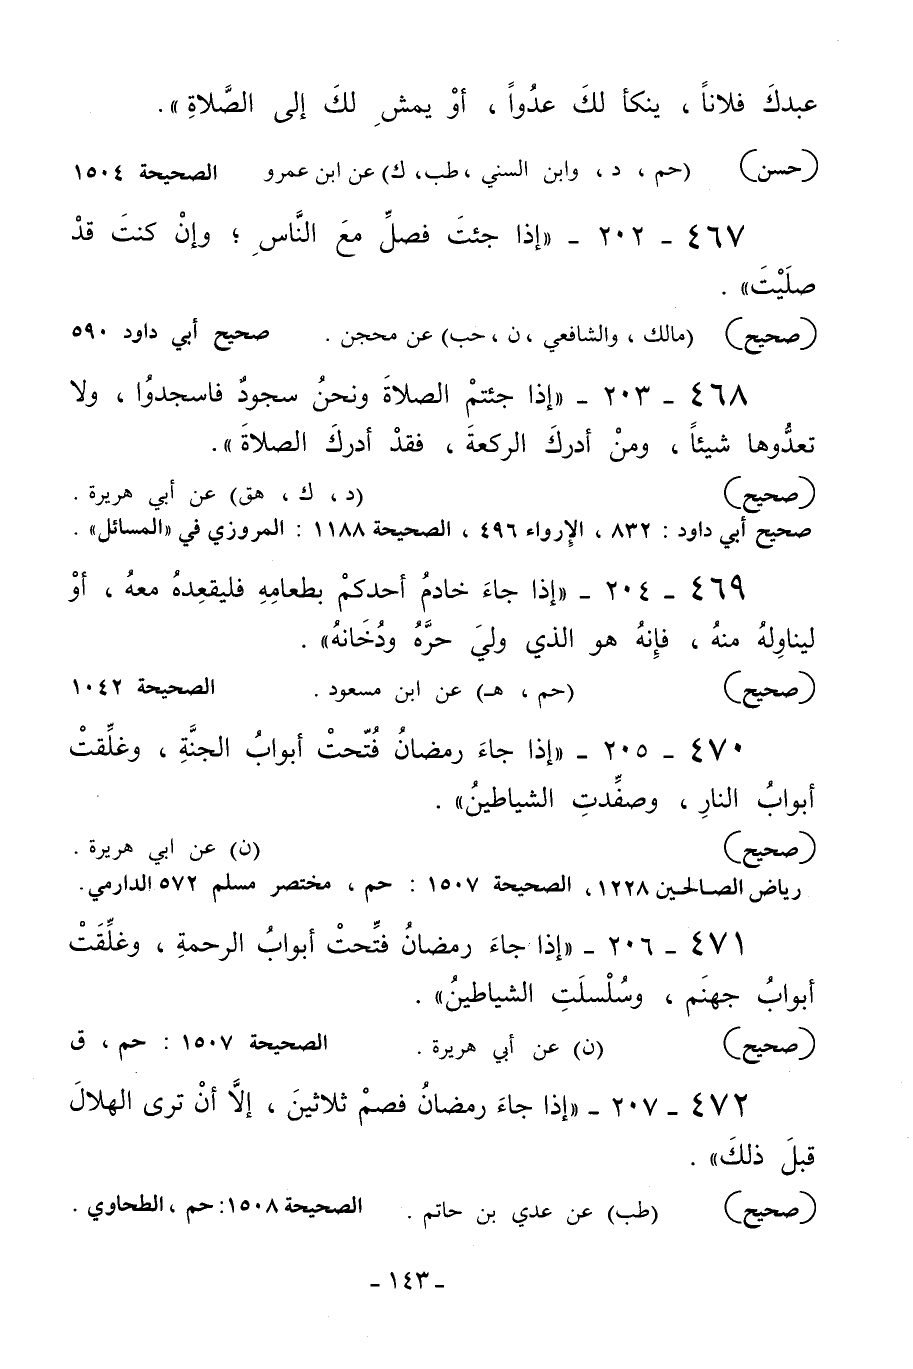 عبدكَ فلاناً ، ينكأ لكَ عدُواً ، أوْ يمشِ لكَ إلى الصَّلاةِ » .
(حسن) (حم ، د ، وابن السني ، طب ، ك) عن ابن عمرو الصحيحة ١٥٠٤
٤٦٧ ـ ٢٠٢ ـ «إذا جئتَ فصلِّ معَ النَّاسِ ؛ وإنْ كنتَ قدْ
صلَيْتَ» .
(صحيح) (مالك ، والشافعي ، ن ، حب) عن محجن . صحيح أبي داود ٥٩٠
٤٦٨ ـ ٢٠٣ ـ «إذا جئتمْ الصلاةَ ونحنُ سجودٌ فاسجدُوا ، ولا
تعدُّوها شيئاً ، ومنْ أدركَ الركعةَ ، فقدْ أدركَ الصلاةَ » .
(صحيح) (د ، ك ، هق) عن أبي هريرة .
صحيح أبي داود : ٨٣٢ ، الإرواء ٤٩٦ ، الصحيحة ١١٨٨ : المروزي في «المسائل» .
٤٦٩ ـ ٢٠٤ ـ «إذا جاءَ خادمُ أحدكمْ بطعامِهِ فليقعِدهُ معهُ ، أوْ
ليناوِلهُ منهُ ، فإنهُ هو الذي وليَ حرَّهُ ودُخَانهُ» .
(صحيح) (حم ، هـ) عن ابن مسعود . الصحيحة ١٠٤٢
٤٧٠ ـ ٢٠٥ ـ «إذا جاءَ رمضانُ فُتّحتْ أبوابُ الجنَّةِ ، وغلِّقتْ
أبوابُ النارِ ، وصفِّدتِ الشياطينُ» .
(صحيح) (ن) عن ابي هريرة .
رياض الصالحين ١٢٢٨ ، الصحيحة ١٥٠٧ : حم ، مختصر مسلم ٥٧٢ الدارمي .
٤٧١ ـ ٢٠٦ ـ «إذا جاءَ رمضانُ فتِّحتْ أبوابُ الرحمةِ ، وغلِّقَتْ
أبوابُ جهنَم ، وسُلْسلَتِ الشياطينُ» .
(صحيح) (ن) عن أبي هريرة . الصحيحة ١٥٠٧ : حم ، ق
٤٧٢ ـ ٢٠٧ ـ «إذا جاءَ رمضانُ فصمْ ثلاثينَ ، إلَّا أنْ ترى الهلالَ
قبلَ ذلكَ» .
(صحيح) (طب) عن عدي بن حاتم . الصحيحة ١٥٠٨ : حم ، الطحاوي .
ـ ١٤٣ ـ